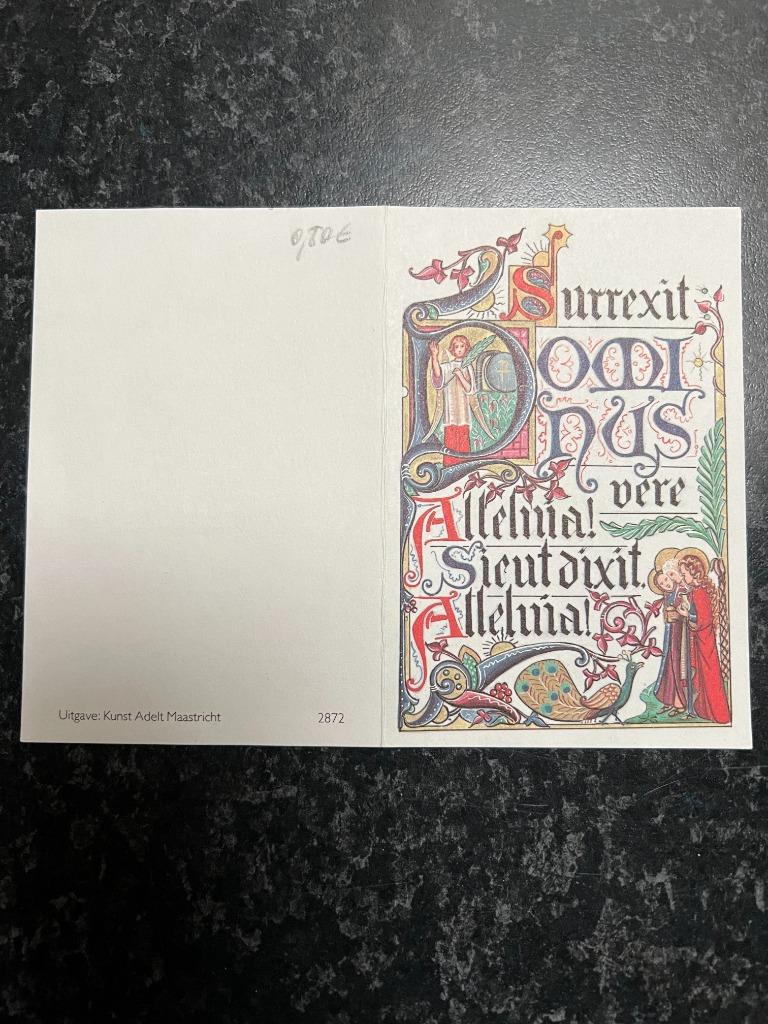 0,80€
Surrexit
Domi
nus
vere
Alleluia!
Sicut dixit.
Alleluia!
Uitgave: Kunst Adelt Maastricht 2872